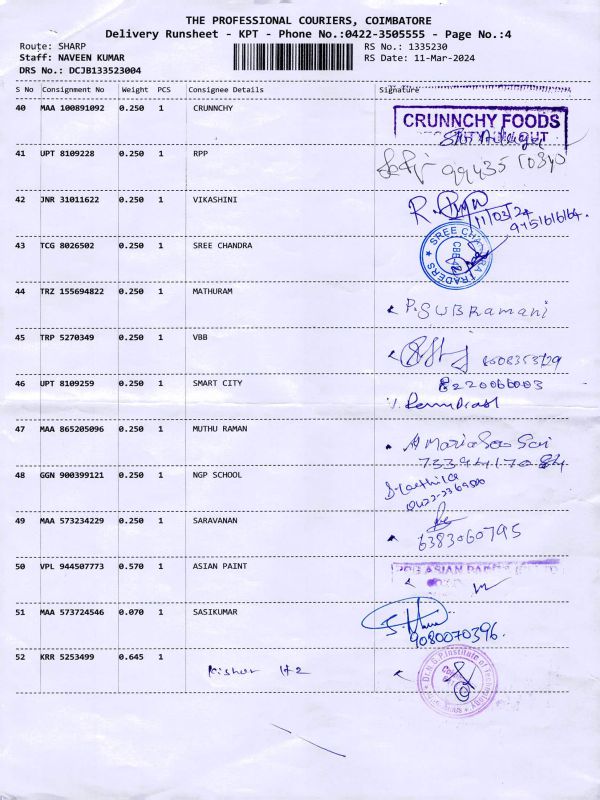 THE PROFESSIONAL COURIERS, COIMBATORE
Delivery Runsheet - KPT - Phone No.:0422-3505555 - Page No.:4
Route: SHARP
Staff: NAVEEN KUMAR
DRS No.: DCJB133523004
RS No.: 1335230
RS Date: 11-Mar-2024
S No Consignment No Weight PCS Consignee Details Signature
40 MAA 100891092 0.250 1 CRUNNCHY
CRUNNCHY FOODS
41 UPT 8109228 0.250 1 RPP
42 JNR 31011622 0.250 1 VIKASHINI
11/03/24
43 TCG 8026502 0.250 1 SREE CHANDRA
SREE CHANDRA TRADERS
44 TRZ 155694822 0.250 1 MATHURAM
P. SUBRamani
45 TRP 5270349 0.250 1 VBB
46 UPT 8109259 0.250 1 SMART CITY
8220066003
47 MAA 865205096 0.250 1 MUTHU RAMAN
48 GGN 900399121 0.250 1 NGP SCHOOL
49 MAA 573234229 0.250 1 SARAVANAN
6383060795
50 VPL 944507773 0.570 1 ASIAN PAINT
51 MAA 573724546 0.070 1 SASIKUMAR
9080070396.
52 KRR 5253499 0.645 1
Dr. N.G.P. Institute of Technology